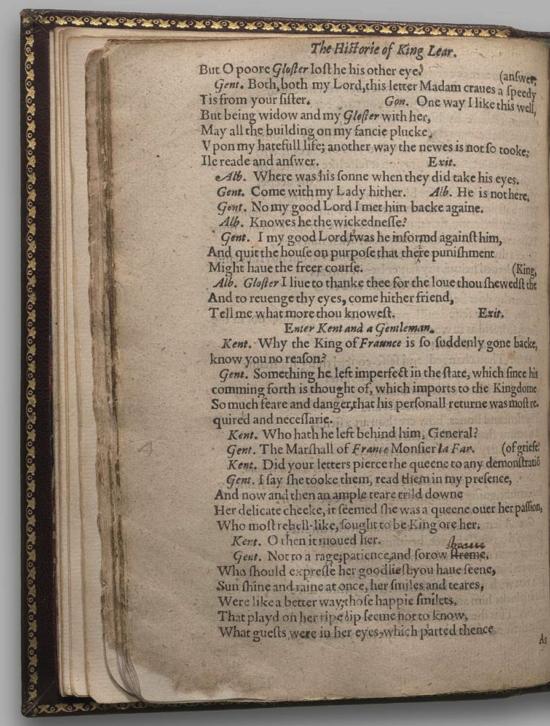 The Historie of King Lear.
But O poore Gloster lost he his other eye?
(answer,
Gent. Both, both my Lord, this letter Madam craues a speedy
Tis from your sister. Gon. One way I like this well,
But being widow and my Gloster with her,
May all the building on my fancie plucke,
Vpon my hatefull life; another way the newes is not so tooke,
Ile reade and answer. Exit.
Alb. Where was his sonne when they did take his eyes.
Gent. Come with my Lady hither. Alb. He is not here,
Gent. No my good Lord I met him backe againe.
Alb. Knowes he the wickednesse?
Gent. I my good Lord, twas he informd against him,
And quit the house on purpose that there punishment
Might haue the freer course. (King,
Alb. Gloster I liue to thanke thee for the loue thou shewedst the
And to reuenge thy eyes, come hither friend,
Tell me what more thou knowest. Exit.
Enter Kent and a Gentleman.
Kent. Why the King of Fraunce is so suddenly gone backe,
know you no reason?
Gent. Something he left imperfect in the state, which since his
comming forth is thought of, which imports to the Kingdome
So much feare and danger, that his personall returne was most re-
quired and necessarie.
Kent. Who hath he left behind him, General?
Gent. The Marshall of France Monsier la Far. (of griefe
Kent. Did your letters pierce the queene to any demonstratiō
Gent. I say she tooke them, read them in my presence,
And now and then an ample teare trild downe
Her delicate cheeke, it seemed she was a queene ouer her passion,
Who most rebell-like, sought to be King ore her.
Kent. O then it moued her.
Gent. Not to a rage, patience and sorow streme,
Who should expresse her goodliest you haue seene,
Sun shine and raine at once, her smiles and teares,
Were like a better way, those happie smilets,
That playd on her ripe lip seeme not to know,
What guests were in her eyes, which parted thence
As